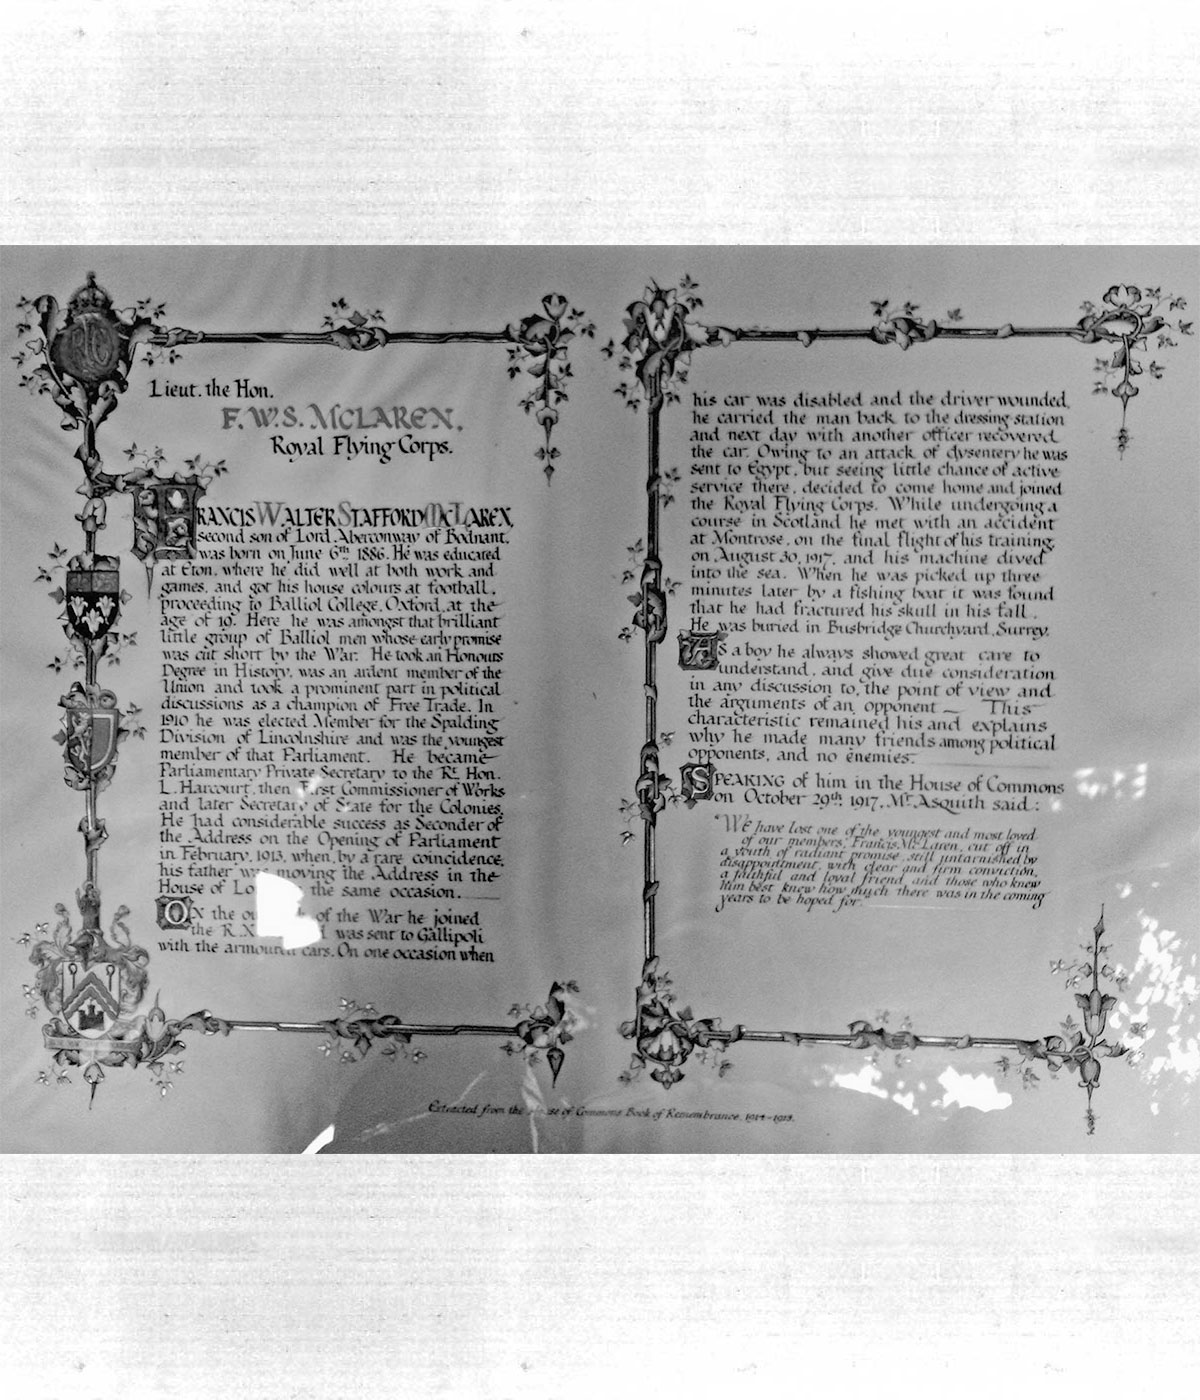 Lieut. the Hon.
F. W. S. McLAREN,
Royal Flying Corps.
FRANCIS WALTER STAFFORD McLAREN,
second son of Lord Aberconway of Bodnant,
was born on June 6th 1886. He was educated
at Eton, where he did well at both work and
games, and got his house colours at football,
proceeding to Balliol College, Oxford, at the
age of 19. Here he was amongst that brilliant
little group of Balliol men whose early promise
was cut short by the War. He took an Honours
Degree in History, was an ardent member of the
Union and took a prominent part in political
discussions as a champion of Free Trade. In
1910 he was elected Member for the Spalding
Division of Lincolnshire and was the youngest
member of that Parliament. He became
Parliamentary Private Secretary to the Rt. Hon.
L. Harcourt, then First Commissioner of Works
and later Secretary of State for the Colonies.
He had considerable success as Seconder of
the Address on the Opening of Parliament
in February, 1913, when, by a rare coincidence,
his father was moving the Address in the
House of Lo the same occasion.
ON the ou of the War he joined
the R.N. was sent to Gallipoli
with the armoured cars. On one occasion when
his car was disabled and the driver wounded,
he carried the man back to the dressing station
and next day with another officer recovered
the car. Owing to an attack of dysentery he was
sent to Egypt, but seeing little chance of active
service there, decided to come home and joined
the Royal Flying Corps. While undergoing a
course in Scotland he met with an accident
at Montrose, on the final flight of his training,
on August 30, 1917, and his machine dived
into the sea. When he was picked up three
minutes later by a fishing boat it was found
that he had fractured his skull in his fall.
He was buried in Busbridge Churchyard, Surrey.
AS a boy he always showed great care to
understand, and give due consideration
in any discussion to, the point of view and
the arguments of an opponent — This
characteristic remained his and explains
why he made many friends among political
opponents, and no enemies.
SPEAKING of him in the House of Commons
on October 29th, 1917, Mr. Asquith said:
"We have lost one of the youngest and most loved
of our members, Francis McLaren, cut off in
a youth of radiant promise, still untarnished by
disappointment, with clear and firm conviction,
a faithful and loyal friend, and those who knew
him best knew how much there was in the coming
years to be hoped for."
Extracted from the House of Commons Book of Remembrance. 1914–1918.